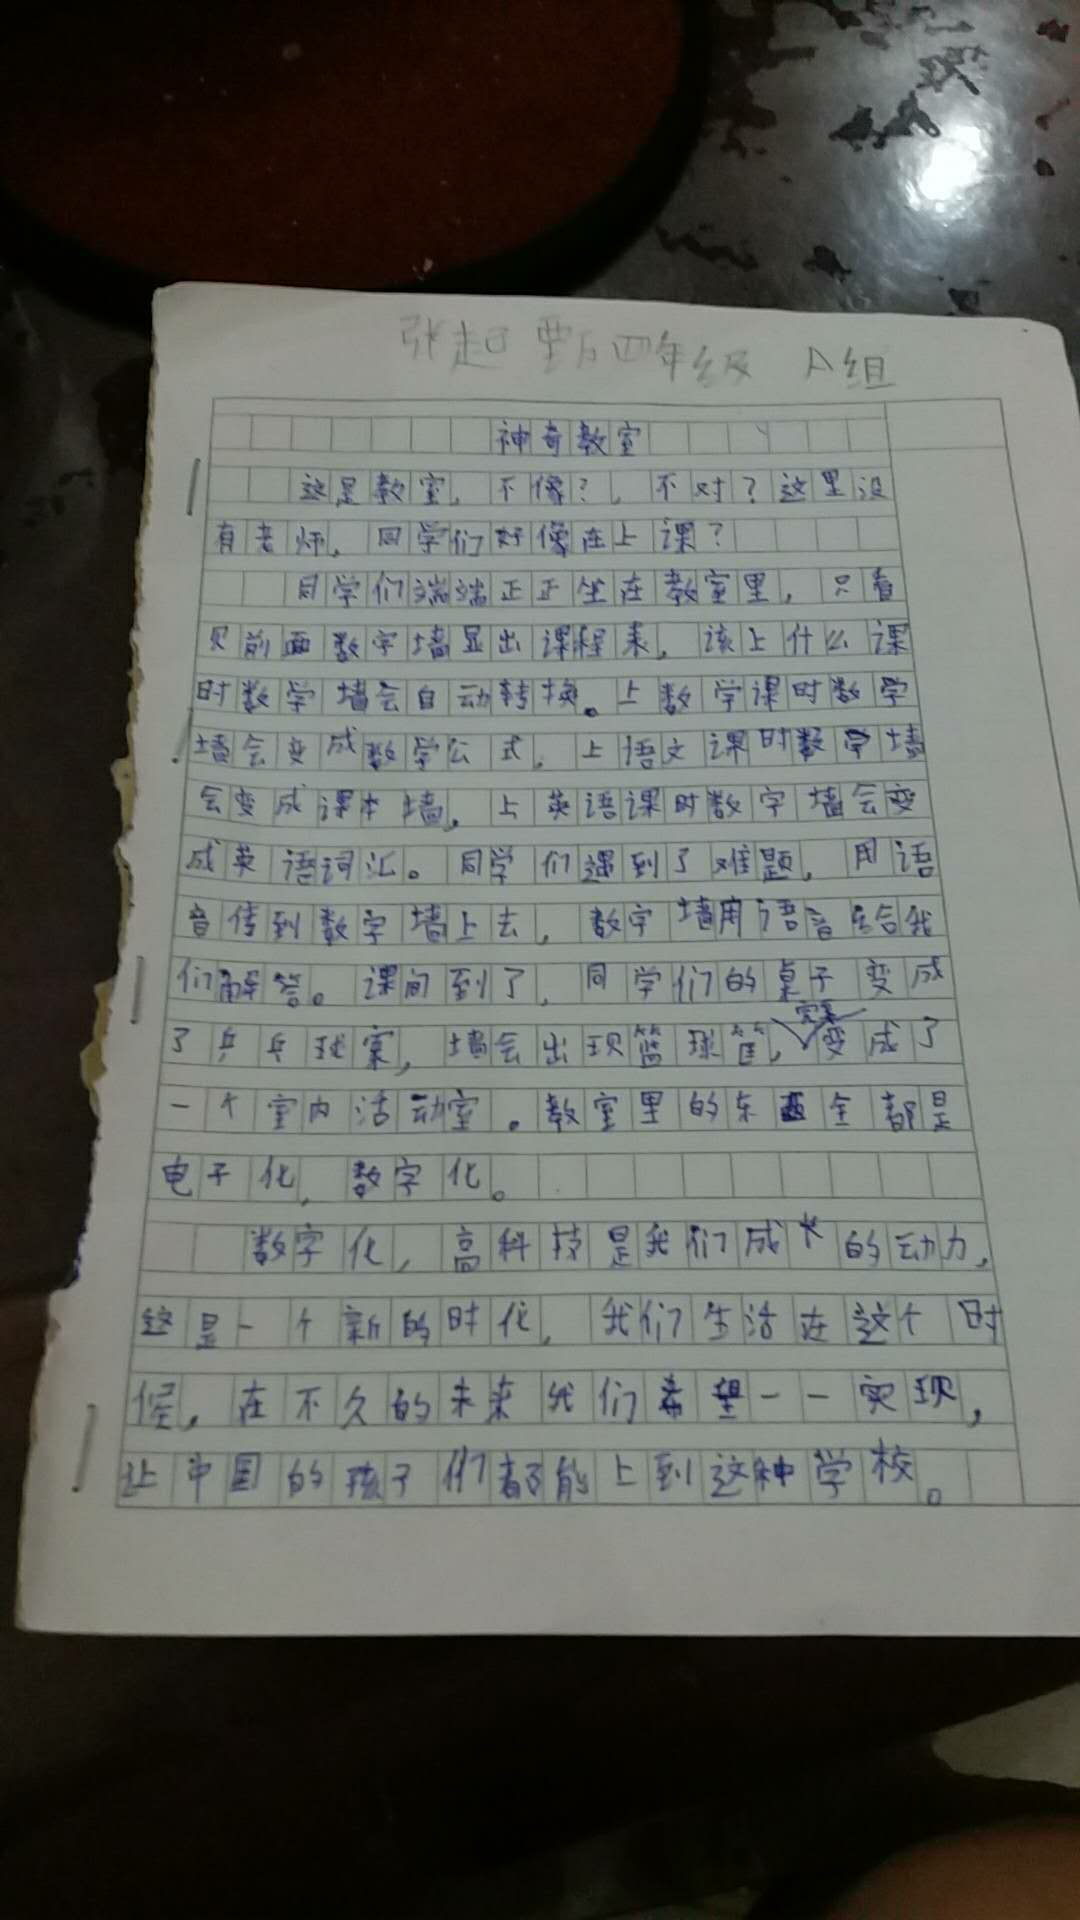 张起 四年级 A组
神奇教室
这是教室，不像？，不对？这里没
有老师，同学们好像在上课？
同学们端端正正坐在教室里，只看
见前面数字墙显出课程表，该上什么课
时数学墙会自动转换。上数学课时数学
墙会变成数学公式，上语文课时数字墙
会变成课本墙，上英语课时数字墙会变
成英语词汇。同学们遇到了难题，用语
音传到数字墙上去，数字墙用语音给我
们解答。课间到了，同学们的桌子变成
了乒乓球案，墙会出现篮球筐，变成了
一个室内活动室。教室里的东西全都是
电子化，数字化。
数字化，高科技是我们成长的动力，
这是一个新的时代，我们生活在这个时
候，在不久的未来我们希望一一实现，
让中国的孩子们都能上到这种学校。